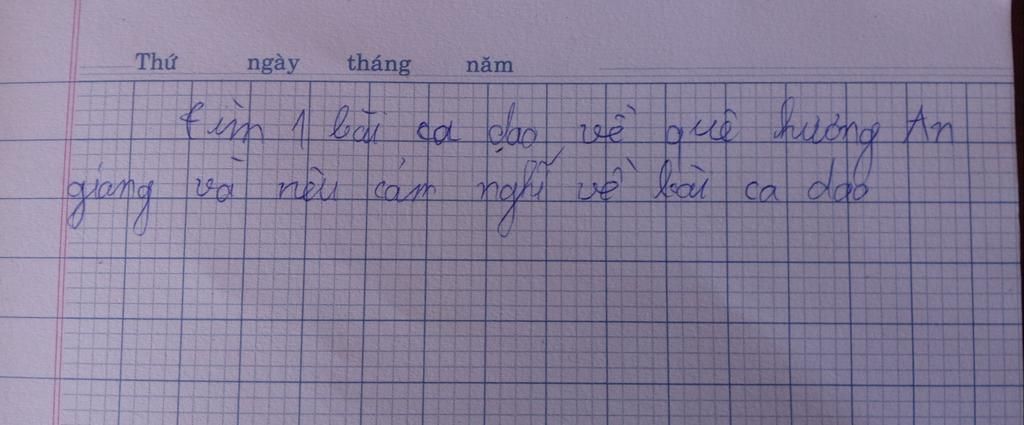 Thứ ngày tháng năm
tìm 1 bài ca dao về quê hương An
giang và nêu cảm nghĩ về bài ca dao